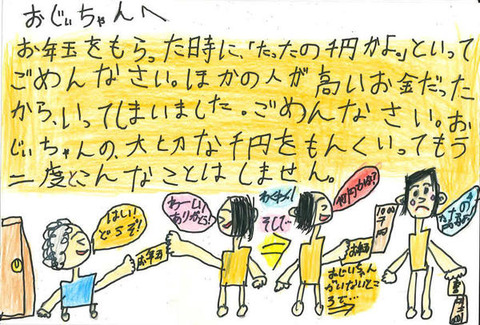 おじぃちゃんへ
お年玉をもらった時に、「たったの千円かよ。」といって
ごめんなさい。ほかの人が高いお金だった
から、いってしまいました。ごめんなさい。お
じぃちゃんの、大切な千円をもんくいってもう
二度とこんなことはしません。
はい!
どうぞ!
お年玉
わーい!
ありがとう!
そして
おじぃちゃん
がいないところ
で…
お年玉
何円かな?
1000
円
たったの